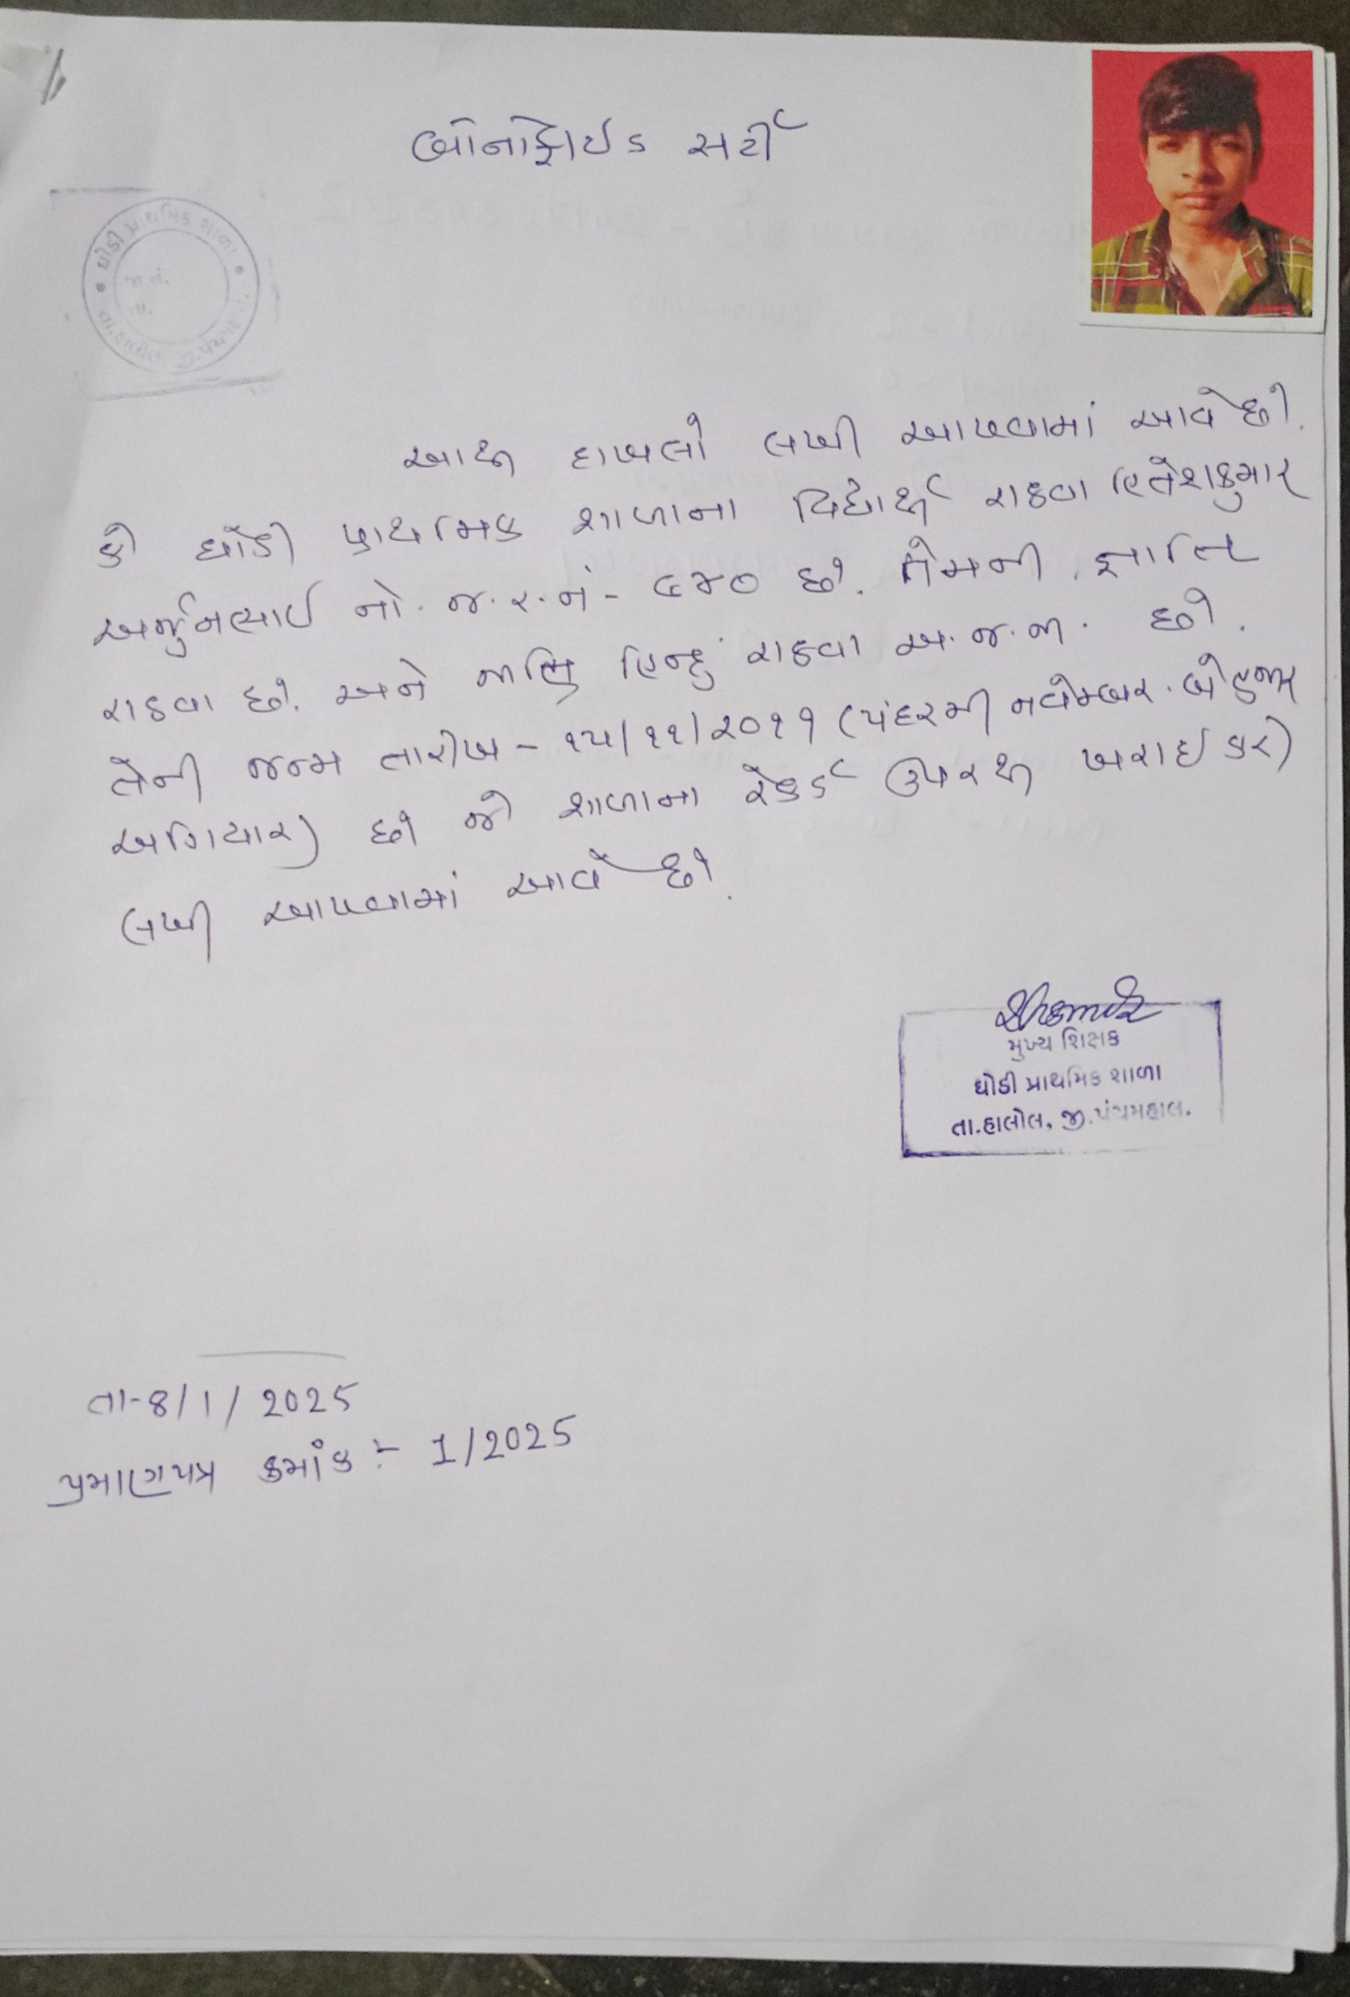 બોનાફાઈડ સર્ટી
ઘોડી પ્રાથમિક શાળા
તા.હાલોલ જી.પંચમહાલ
જા.નં.
તા.
આથી દાખલો લખી આપવામાં આવે છે.
કે ઘોડી પ્રાથમિક શાળાના વિદ્યાર્થી રાઠવા હિતેશકુમાર
અર્જુનભાઈ નો. જ.ર.નં - ૬૪૦ છે. તેમની જ્ઞાતિ
રાઠવા છે. અને જાતિ હિન્દુ રાઠવા અ.જ.જા. છે.
તેની જન્મ તારીખ - ૧૫/૧૧/૨૦૧૧ (પંદરમી નવેમ્બર. બે હજાર
અગિયાર) છે જે શાળાના રેકર્ડ ઉપરથી ખરાઈ કરી
લખી આપવામાં આવે છે.
મુખ્ય શિક્ષક
ઘોડી પ્રાથમિક શાળા
તા.હાલોલ, જી.પંચમહાલ.
તા-8/1/2025
પ્રમાણપત્ર ક્રમાંક :- 1/2025